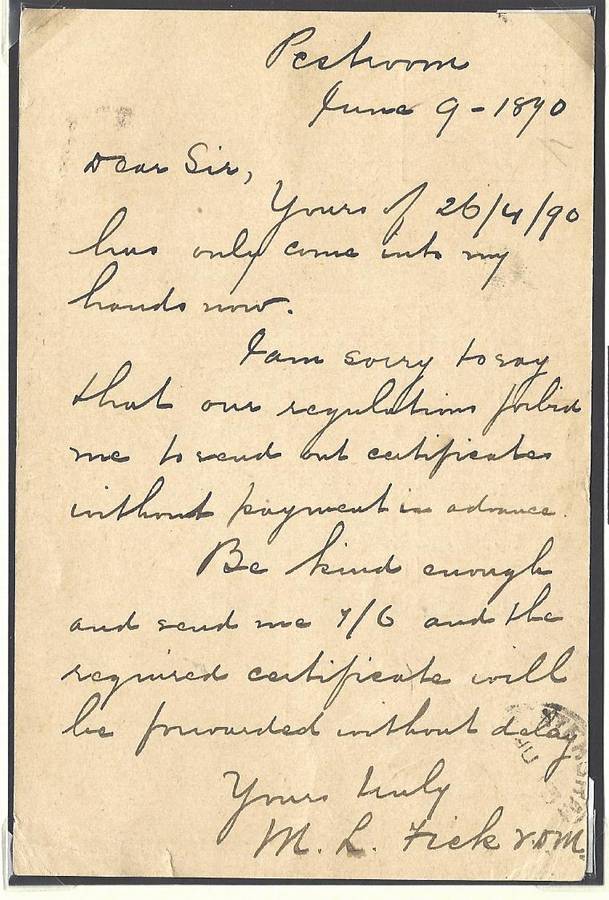 Pcstroom
June 9 - 1890
Dear Sir,
Yours of 26/4/90
has only come into my
hands now.
I am sorry to say
that our regulations forbid
me to send out certificates
without payment in advance.
Be kind enough
and send me 7/6 and the
required certificate will
be forwarded without delay
Yours truly
M. L. Fick